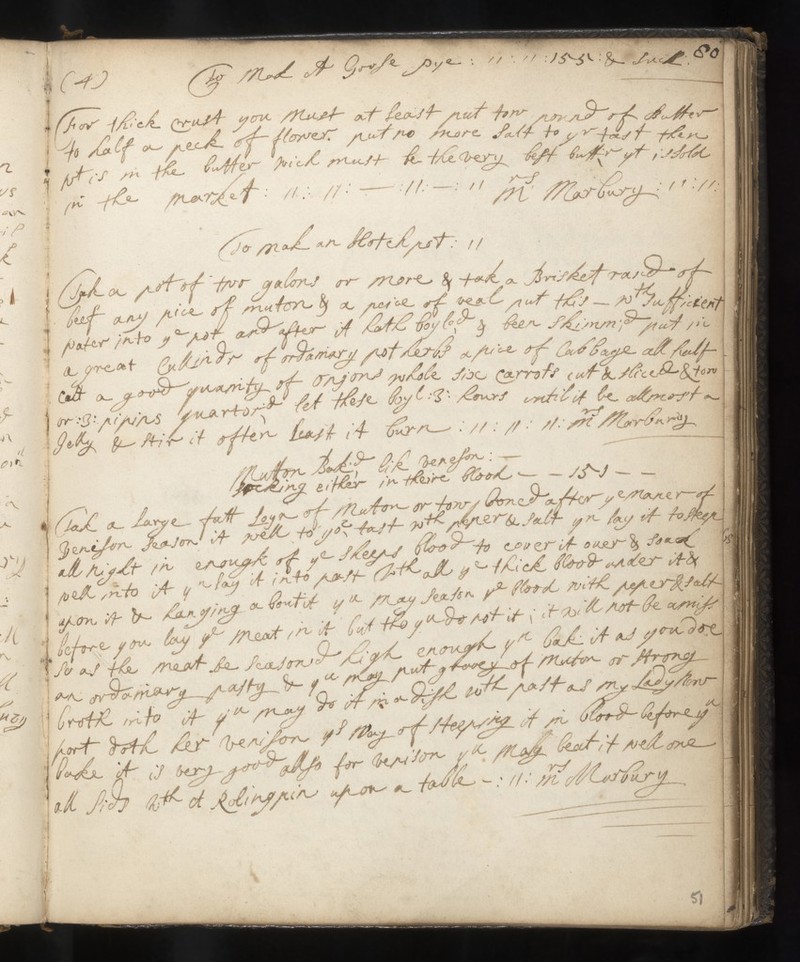 80
(4) To Mak A Goose pye : 11 : 11 : 155 : & such
For thick crust you must at least put tow pownd of Butter
to half a peck of flower. put no more Salt to yr past then
wt is in the butter wich must be the very best butter yt is sold
in the market : 11 : 11 : — : 11 : — : 11 mrs Marbury : 11 : 11 :
To mak an Hotch pot : 11
Tak a pot of two galons or more & tak a Brisket rand of
beef any pice of muton & a peice of veal put this — wth sufficient
water into ye pot and after it hath boyled & been skimm;d put in
a great Cullindr of ordaniary pot herbs a pice of Cabbage all half
cut a good quanity of onjons whole six carrots cut & sliced & tow
or :3: pipins quartor'd let these boyl :3: hours until it be allmost a
Jelly & stir it often least it burn : 11 : 11 : 11 : mrs Marbury
Mutton Bak'd lik veneson : —
socking either in theire blood — — 151 — —
Tak a Large fatt Legn of Muton or tow, boned after ye maner of
Venison season it well to yor tast wth peper & salt yn lay it to steep
all night in enough of ye sheeps blood to cover it over & soack
well into it yn lay it into past wth all ye thick blood under it &
upon it & hanging about it yu may season ye blood with peper & salt
before you lay ye meat in it but tho yu do not it ; it will not be amiss
so as the meat be seasoned high enough yn bak it as you doe
an ordainary pasty & yu may put grovey of muton or strong
broth into it yu may do it in a dish wth past as my Lady How
port doth her venison ys way of steeping it in blood before yu
bake it is very good allso for venison yu may beat it well one
all sids wth A Rolingpin upon a table - : 11 : mrs Marbury
51